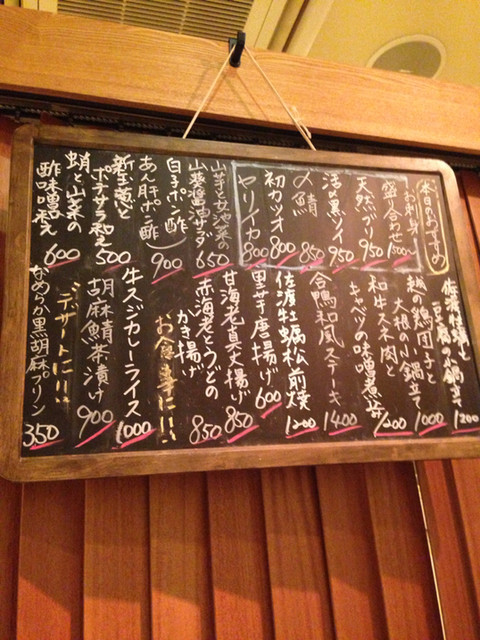 本日のおすすめ
お刺身
盛り合わせ 1500~
天然ブリ 950
活〆黒ソイ 950
〆鯖 850
初カツオ 800
ヤリイカ 800
山芋と水菜の
山葵醤油サラダ 650
白子ポン酢
あん肝ポン酢 900
新玉葱と
ポテサラ和え 500
蛸と山菜の
酢味噌和え 600
佐渡牡蠣と
豆腐の小鍋立て 1200
越の鶏団子と
大根の小鍋立て 1000
和牛スネ肉と
キャベツの味噌煮込 1200
合鴨和風ステーキ 1400
佐渡牡蠣松前焼 1200
里芋唐揚げ 600
甘海老真丈揚げ 850
赤海老とうどの
かき揚げ 850
お食事に!!
牛スジカレーライス 1000
胡麻鯖茶漬け 900
デザートに!!
なめらか黒胡麻プリン 350